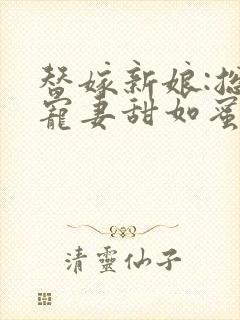 替嫁新娘:总
宠妻甜如蜜
清靈仙子